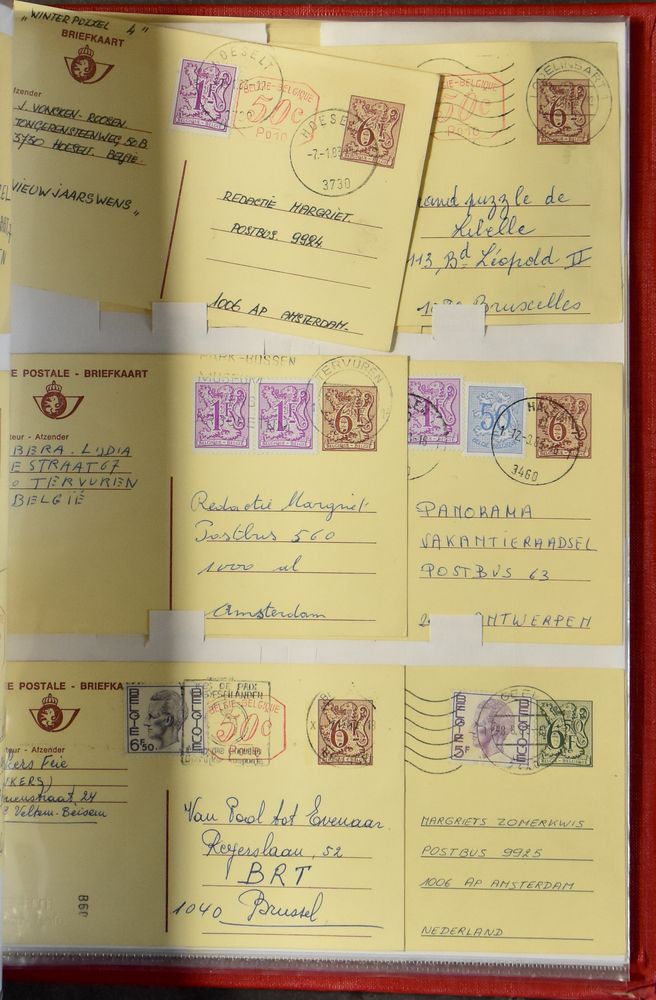 "WINTER PUZZEL 4"
BRIEFKAART
J. VONCKEN-ROOSEN.
TONGERENSTEENWEG 50 B.
3730 HOESELT. BELGIË
"NIEUWJAARSWENS"
HOESELT
1F
BELGIË-BELGIQUE
50c
P010
HOESELT
-7.-1.83
3730
6F
REDACTIE MARGRIET.
POSTBUS. 9924
1006 AP AMSTERDAM.
BELGIË-BELGIQUE
50c
P010
6F
puzzle de
Libelle
113, Bd Léopold II
Bruxelles
E POSTALE - BRIEFKAART
teur - Afzender
BERA. LIDIA
E STRAAT 67
TERVUREN
BELGIË
PARK-BOSSEN
MUSEUM
TERVUREN
1F
1F
6F
Redactie Margriet
Postbus 560
1000 al
Amsterdam
1F
50
6F
3460
PANORAMA
VAKANTIERAADSEL
POSTBUS 63
ANTWERPEN
E POSTALE - BRIEFKA
teur - Afzender
Feie
Veltem-Beisem
860
BELGIE
6F50
BELGIQUE
BELGIË-BELGIQUE
50c
6F
Van Pool tot Evenaar
Reyerslaan, 52
BRT
1040 Brussel
BELGIE
5F
BELGIQUE
GEEL
6F50
MARGRIETS ZOMERKWIS
POSTBUS 9925
1006 AP AMSTERDAM
NEDERLAND